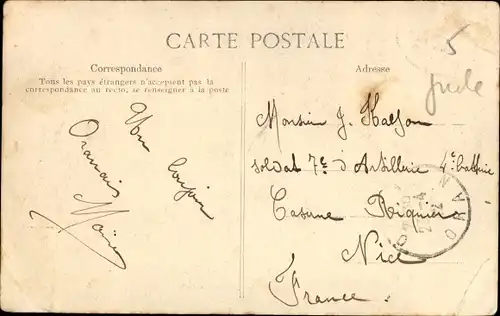 CARTE POSTALE
Correspondance
Tous les pays étrangers n'acceptent pas la
correspondance au recto, se renseigner à la poste
Adresse
5
Un
Oranais
Monsieur J.
soldat 7e d'Artillerie 4e batterie
Caserne Riquier
Nice
France.
ORAN